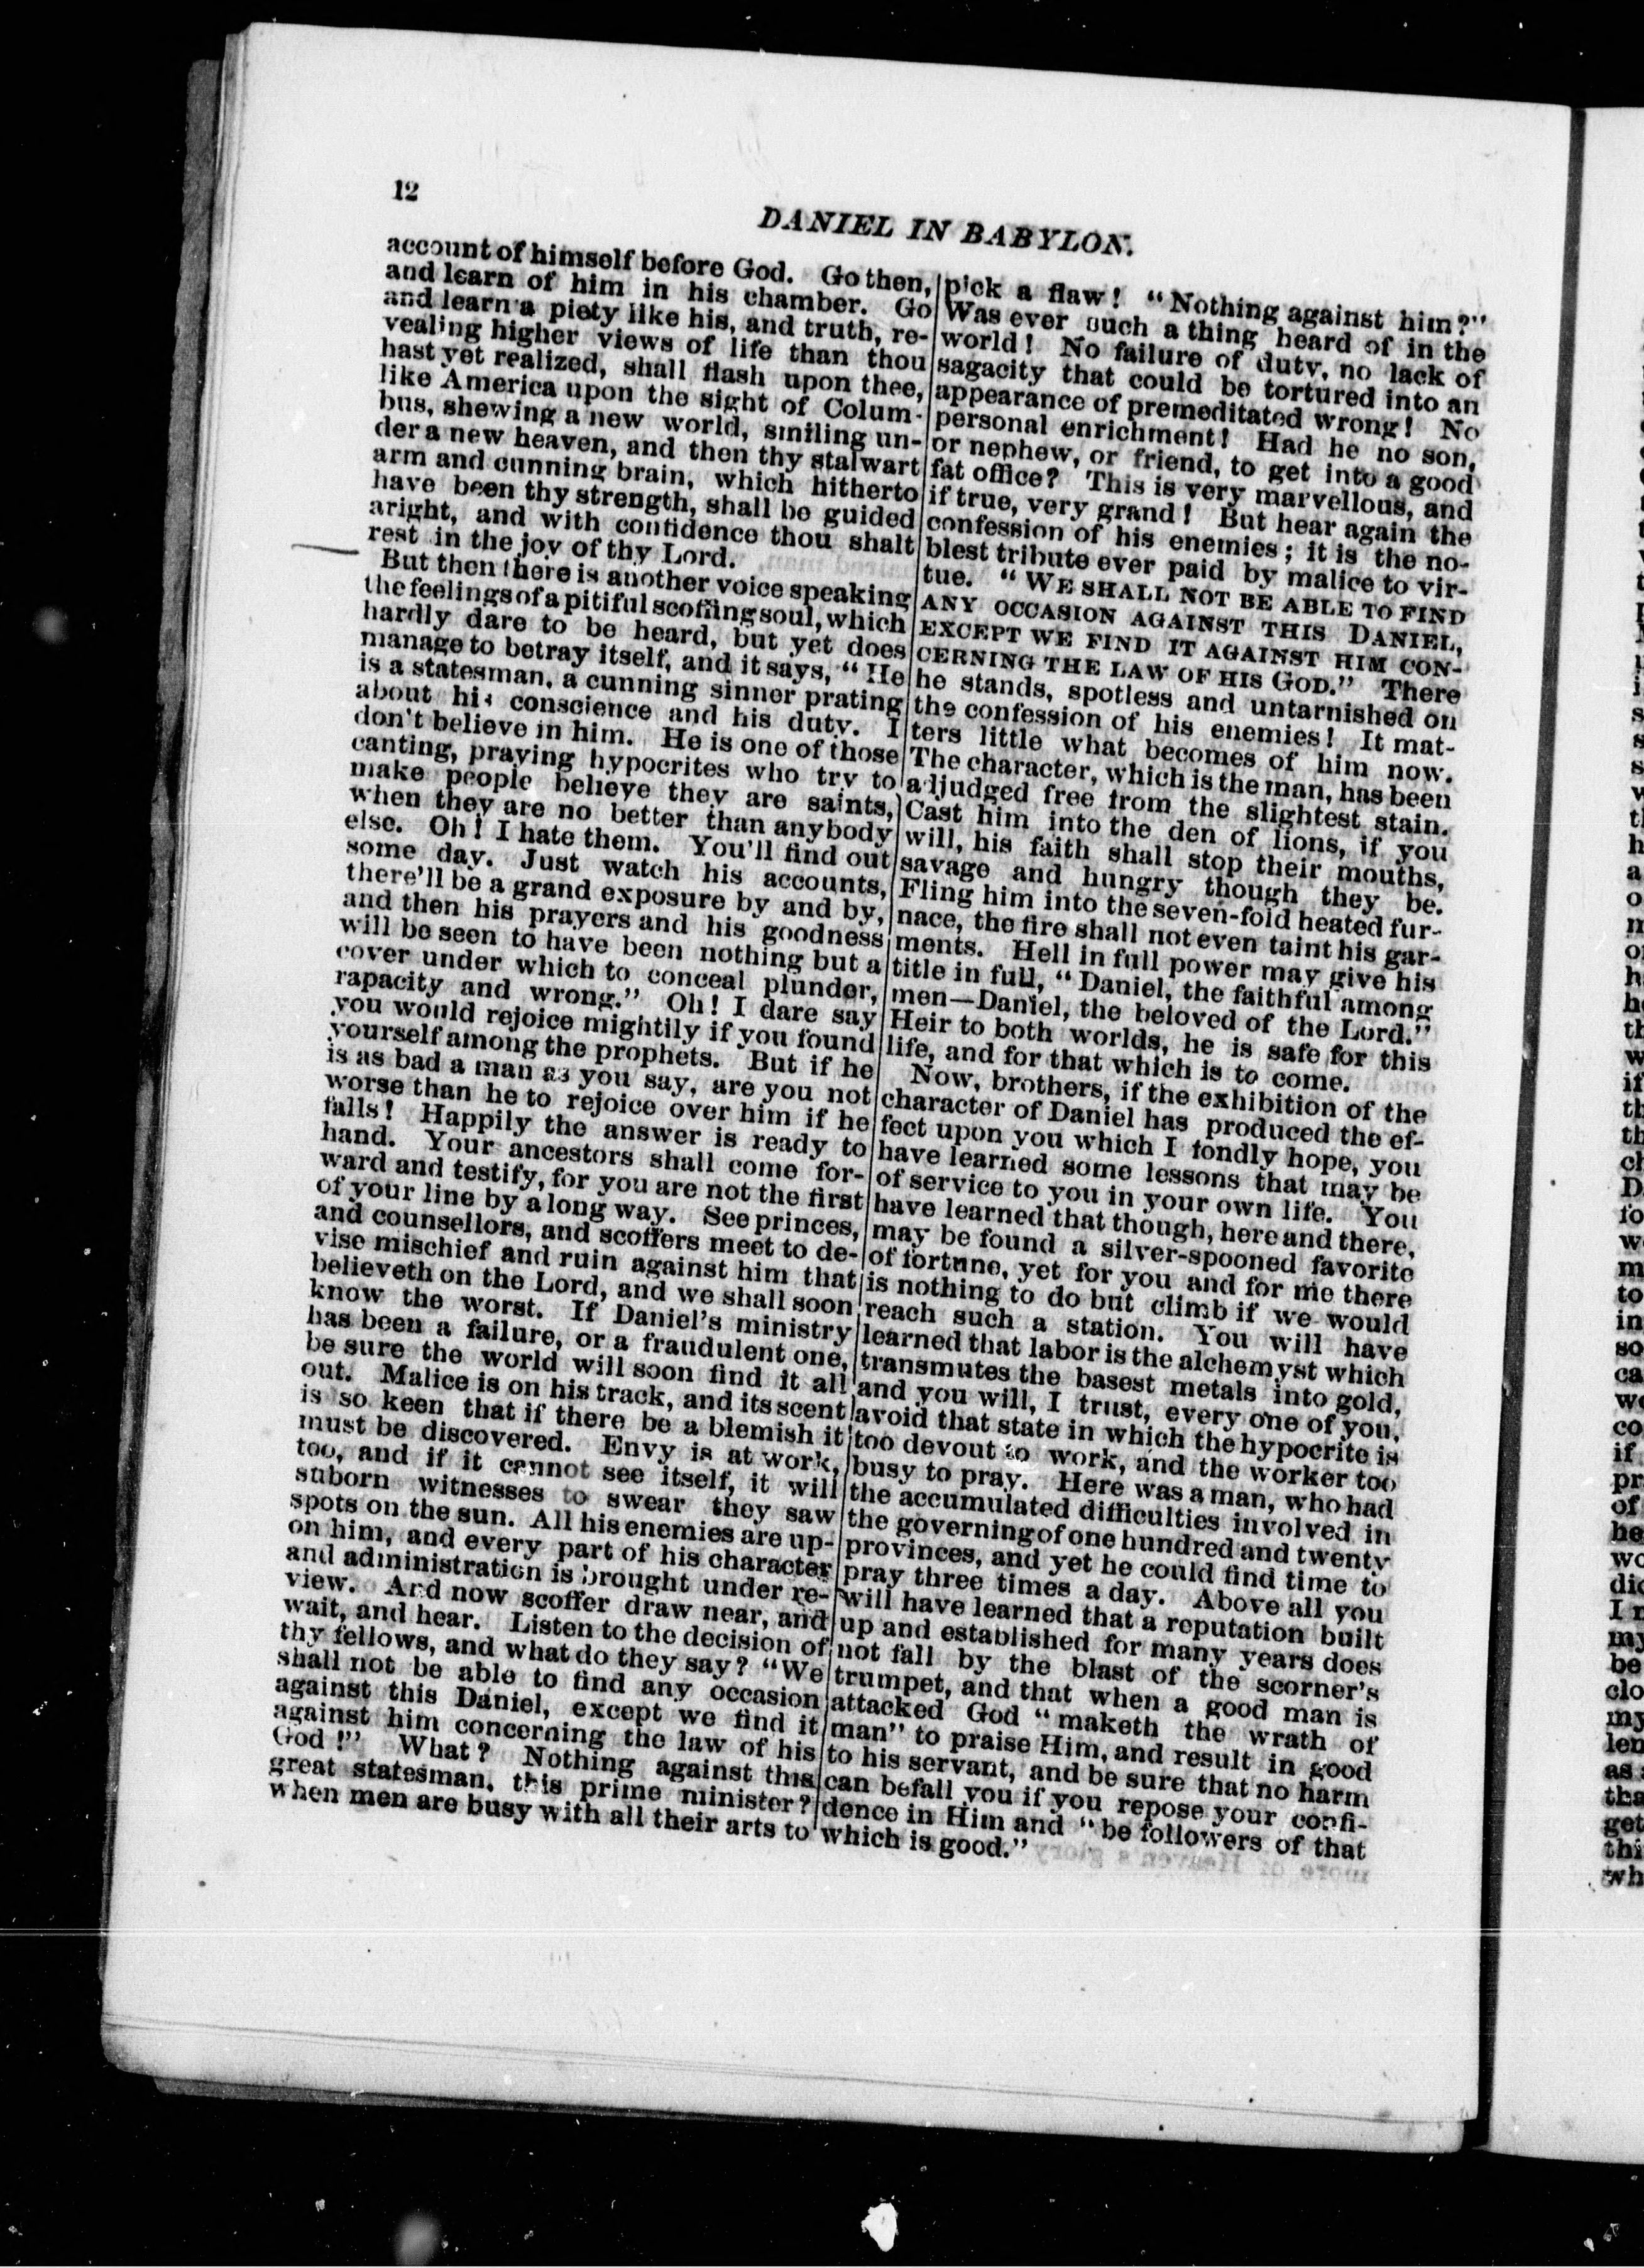 12
DANIEL IN BABYLON.
account of himself before God. Go then,
and learn of him in his chamber. Go
and learn a piety like his, and truth, re-
vealing higher views of life than thou
hast yet realized, shall flash upon thee,
like America upon the sight of Colum-
bus, shewing a new world, smiling un-
der a new heaven, and then thy stalwart
arm and cunning brain, which hitherto
have been thy strength, shall be guided
aright, and with confidence thou shalt
rest in the joy of thy Lord.
But then there is another voice speaking
the feelings of a pitiful scoffing soul, which
hardly dare to be heard, but yet does
manage to betray itself, and it says, "He
is a statesman, a cunning sinner prating
about his conscience and his duty. I
don't believe in him. He is one of those
canting, praying hypocrites who try to
make people believe they are saints,
when they are no better than anybody
else. Oh! I hate them. You'll find out
some day. Just watch his accounts,
there'll be a grand exposure by and by,
and then his prayers and his goodness
will be seen to have been nothing but a
cover under which to conceal plunder,
rapacity and wrong." Oh! I dare say
you would rejoice mightily if you found
yourself among the prophets. But if he
is as bad a man as you say, are you not
worse than he to rejoice over him if he
falls! Happily the answer is ready to
hand. Your ancestors shall come for-
ward and testify, for you are not the first
of your line by a long way. See princes,
and counsellors, and scoffers meet to de-
vise mischief and ruin against him that
believeth on the Lord, and we shall soon
know the worst. If Daniel's ministry
has been a failure, or a fraudulent one,
be sure the world will soon find it all
out. Malice is on his track, and its scent
is so keen that if there be a blemish it
must be discovered. Envy is at work,
too, and if it cannot see itself, it will
suborn witnesses to swear they saw
spots on the sun. All his enemies are up-
on him, and every part of his character
and administration is brought under re-
view. And now scoffer draw near, and
wait, and hear. Listen to the decision of
thy fellows, and what do they say? "We
shall not be able to find any occasion
against this Daniel, except we find it
against him concerning the law of his
God!" What? Nothing against this
great statesman, this prime minister?
when men are busy with all their arts to
pick a flaw! "Nothing against him?"
Was ever such a thing heard of in the
world! No failure of duty, no lack of
sagacity that could be tortured into an
appearance of premeditated wrong! No
personal enrichment! Had he no son,
or nephew, or friend, to get into a good
fat office? This is very marvellous, and
if true, very grand! But hear again the
confession of his enemies; it is the no-
blest tribute ever paid by malice to vir-
tue. "WE SHALL NOT BE ABLE TO FIND
ANY OCCASION AGAINST THIS DANIEL,
EXCEPT WE FIND IT AGAINST HIM CON-
CERNING THE LAW OF HIS GOD." There
he stands, spotless and untarnished on
the confession of his enemies! It mat-
ters little what becomes of him now.
The character, which is the man, has been
adjudged free from the slightest stain.
Cast him into the den of lions, if you
will, his faith shall stop their mouths,
savage and hungry though they be.
Fling him into the seven-fold heated fur-
nace, the fire shall not even taint his gar-
ments. Hell in full power may give his
title in full, "Daniel, the faithful among
men—Daniel, the beloved of the Lord."
Heir to both worlds, he is safe for this
life, and for that which is to come.
Now, brothers, if the exhibition of the
character of Daniel has produced the ef-
fect upon you which I fondly hope, you
have learned some lessons that may be
of service to you in your own life. You
have learned that though, here and there,
may be found a silver-spooned favorite
of fortune, yet for you and for me there
is nothing to do but climb if we would
reach such a station. You will have
learned that labor is the alchemyst which
transmutes the basest metals into gold,
and you will, I trust, every one of you,
avoid that state in which the hypocrite is
too devout to work, and the worker too
busy to pray. Here was a man, who had
the accumulated difficulties involved in
the governing of one hundred and twenty
provinces, and yet he could find time to
pray three times a day. Above all you
will have learned that a reputation built
up and established for many years does
not fall by the blast of the scorner's
trumpet, and that when a good man is
attacked God "maketh the wrath of
man" to praise Him, and result in good
to his servant, and be sure that no harm
can befall you if you repose your confi-
dence in Him and "be followers of that
which is good."